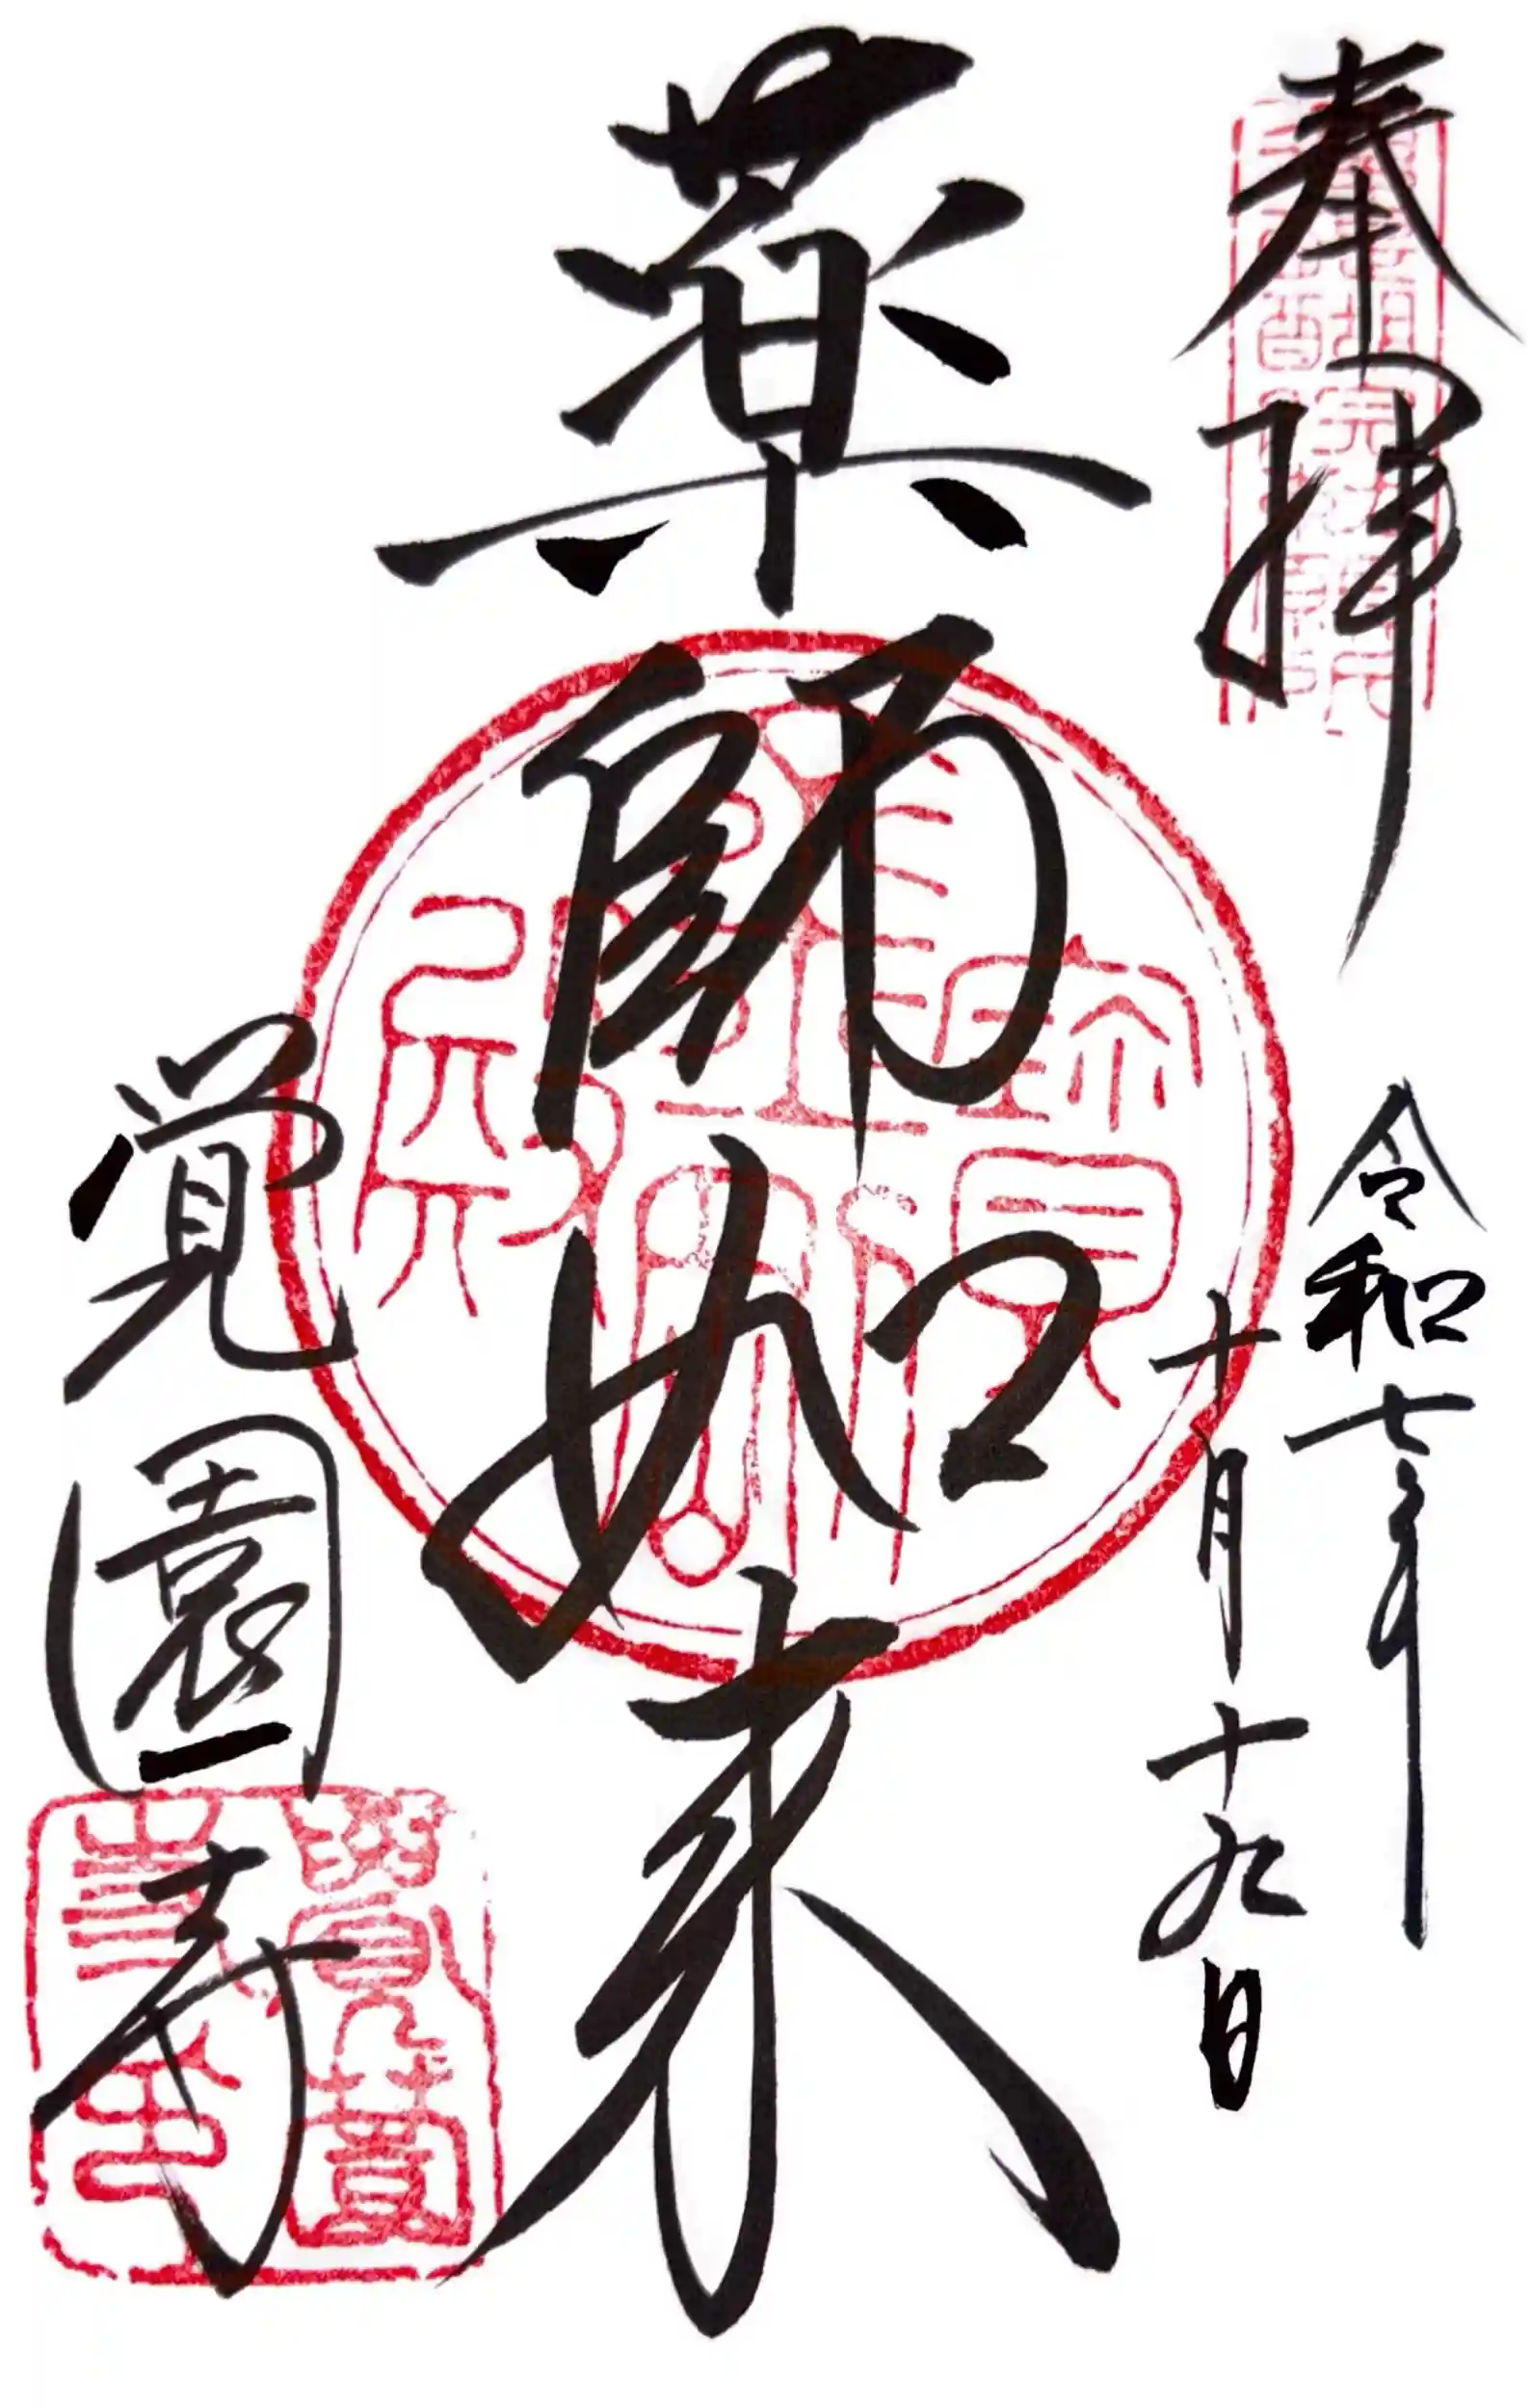 奉拝
令和七年
十月十九日
薬師如来
覚園寺